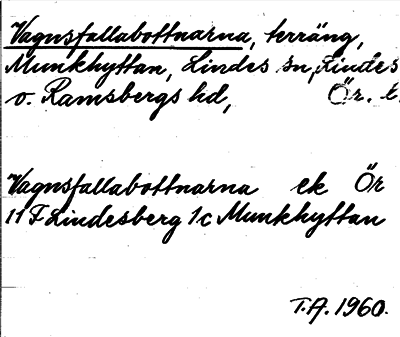 Vagnsfallabottnarna, terräng,
Munkhyttan, Lindes sn, Lindes
o. Ramsbergs hd, Ör. l.
Vagnsfallabottnarna ek Ör
11 F Lindesberg 1c Munkhyttan
T.A. 1960.